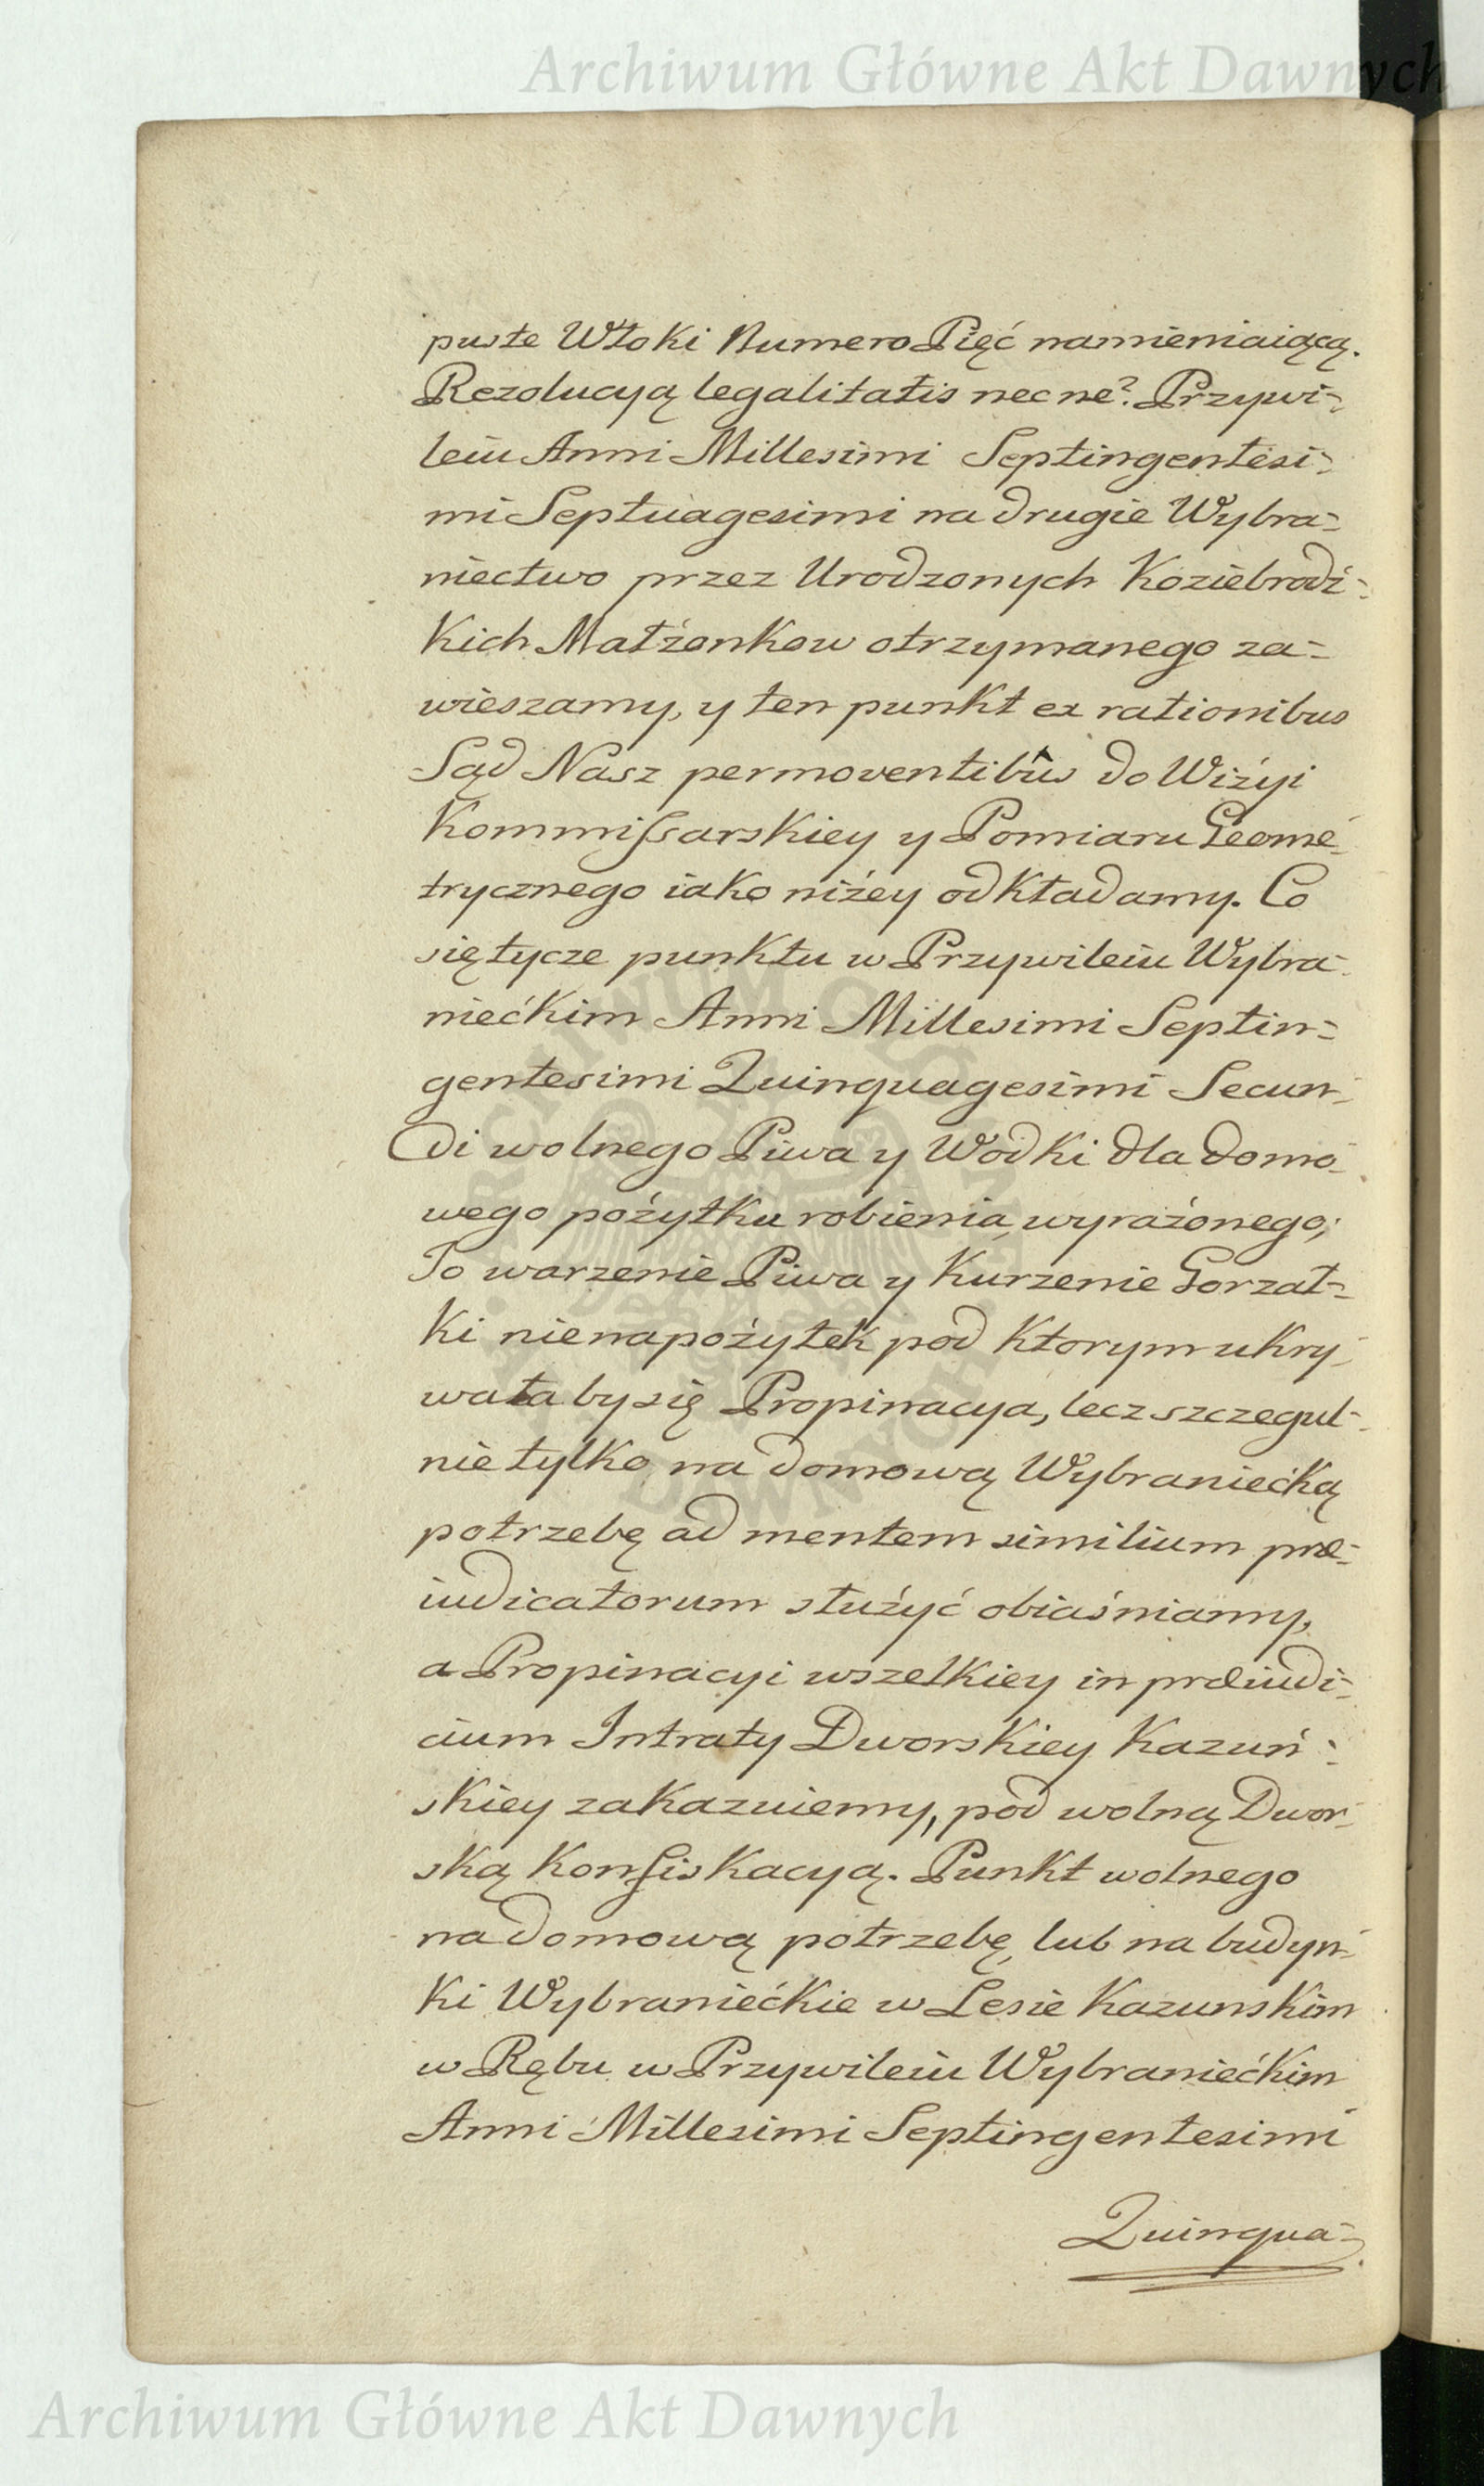 Archiwum Główne Akt Dawnych
puste Włoki Numero Pięć namieniaiącą.
Rezolucyą legalitatis nec ne? Przywi=
leiu Anni Millesimi Septingentesi=
mi Septuagesimi na drugie Wybra=
niectwo przez Urodzonych Koziebrodz=
kich Małżonkow otrzymanego za=
wieszamy, y ten punkt ex rationibus
Sąd Nasz permoventibus do Wizyi
Kommissarskiey y Pomiaru Geome=
trycznego iako niżey odkładamy. Co
się tycze punktu w Przywileiu Wybra=
niećkim Anni Millesimi Septin=
gentesimi Quinquagesimi Secun=
di wolnego Piwa y Wodki dla domo=
wego pożytku robienia, wyrażonego;
To warzenie Piwa y Kurzenie Gorzał=
ki nie na pożytek pod ktorym ukry=
wała by się Propinacya, lecz szczegul=
nie tylko na domową Wybraniecką
potrzebę ad mentem similium præ=
iudicatorum służyć obiaśniamy,
a Propinacyi wszelkiey in præiudi=
cium Intraty Dworskiey Kazuń=
skiey zakazuiemy, pod wolną Dwor=
ską Konfiskacyą. Punkt wolnego
na domową potrzebę, lub na budyn=
ki Wybraniećkie w Lesie Kazunskim
w Rębu w Przywileiu Wybraniećkim
Anni Millesimi Septingentesimi
Quinqua=
Archiwum Główne Akt Dawnych